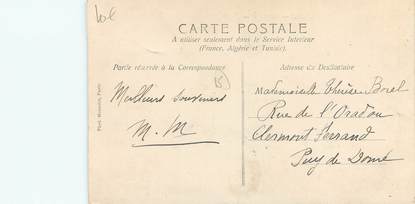 10€
CARTE POSTALE
A utiliser seulement dans le Service Intérieur
(France, Algérie et Tunisie).
Partie réservée à la Correspondance
Adresse du Destinataire
15
Meilleurs Souvenirs
M. M
Mademoiselle Thérèse Borel
Rue de l'Oradou
Clermont Ferrand
Puy de Dome